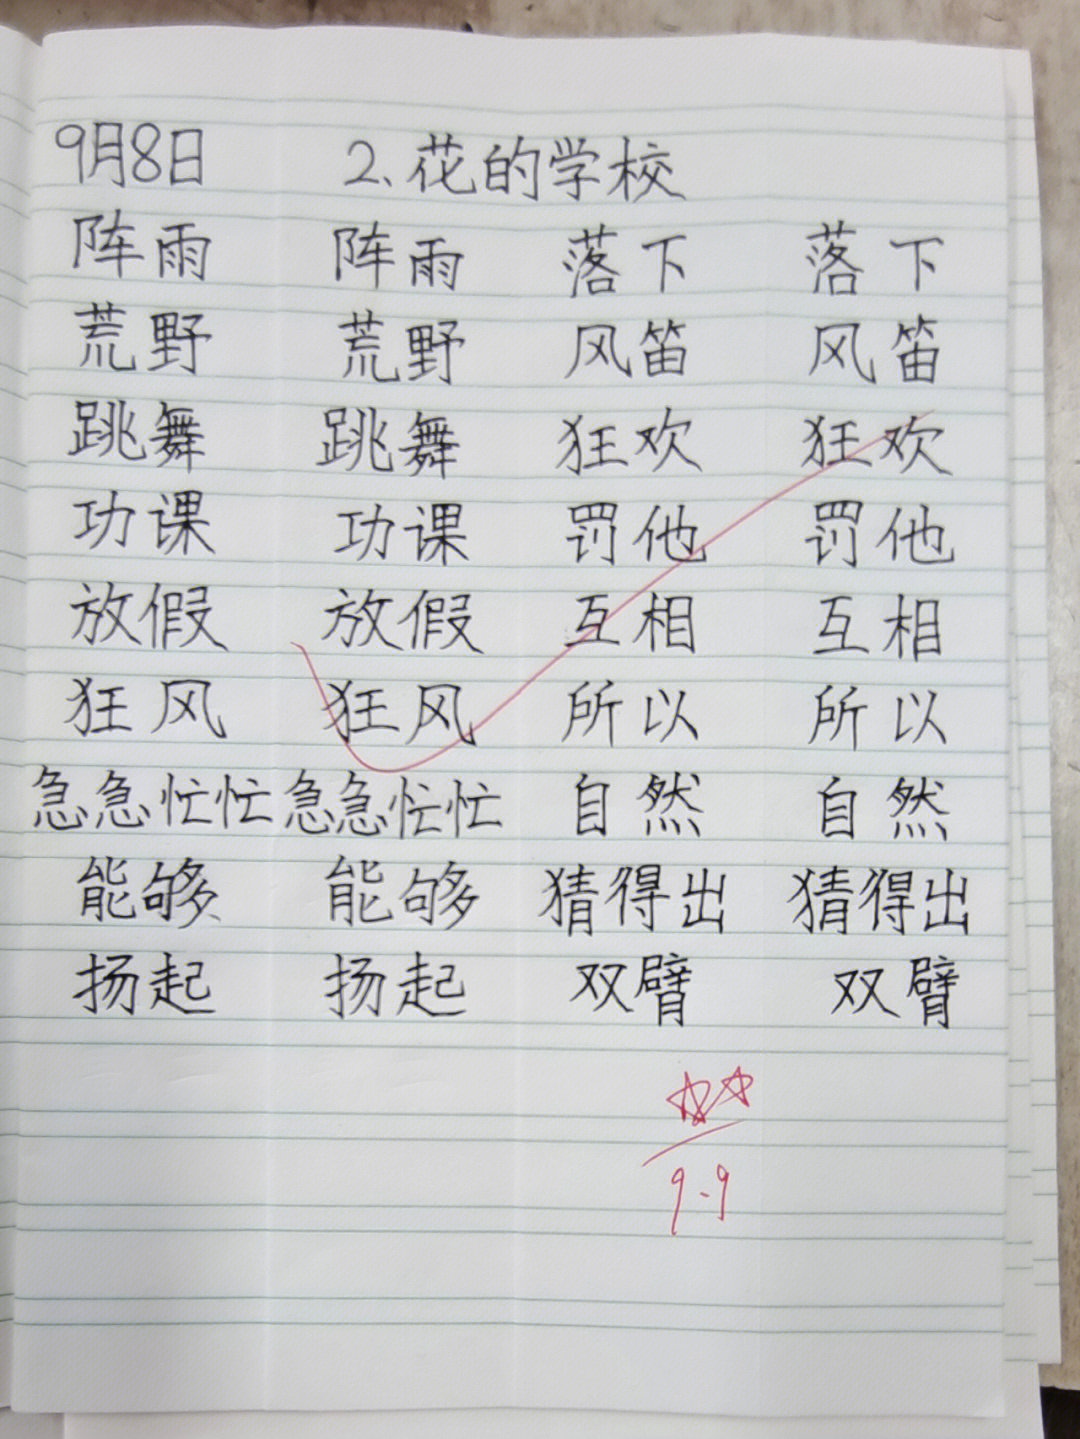 9月8日 2、花的学校
阵雨 阵雨 落下 落下
荒野 荒野 风笛 风笛
跳舞 跳舞 狂欢 狂欢
功课 功课 罚他 罚他
放假 放假 互相 互相
狂风 狂风 所以 所以
急急忙忙 急急忙忙 自然 自然
能够 能够 猜得出 猜得出
扬起 扬起 双臂 双臂
9.9